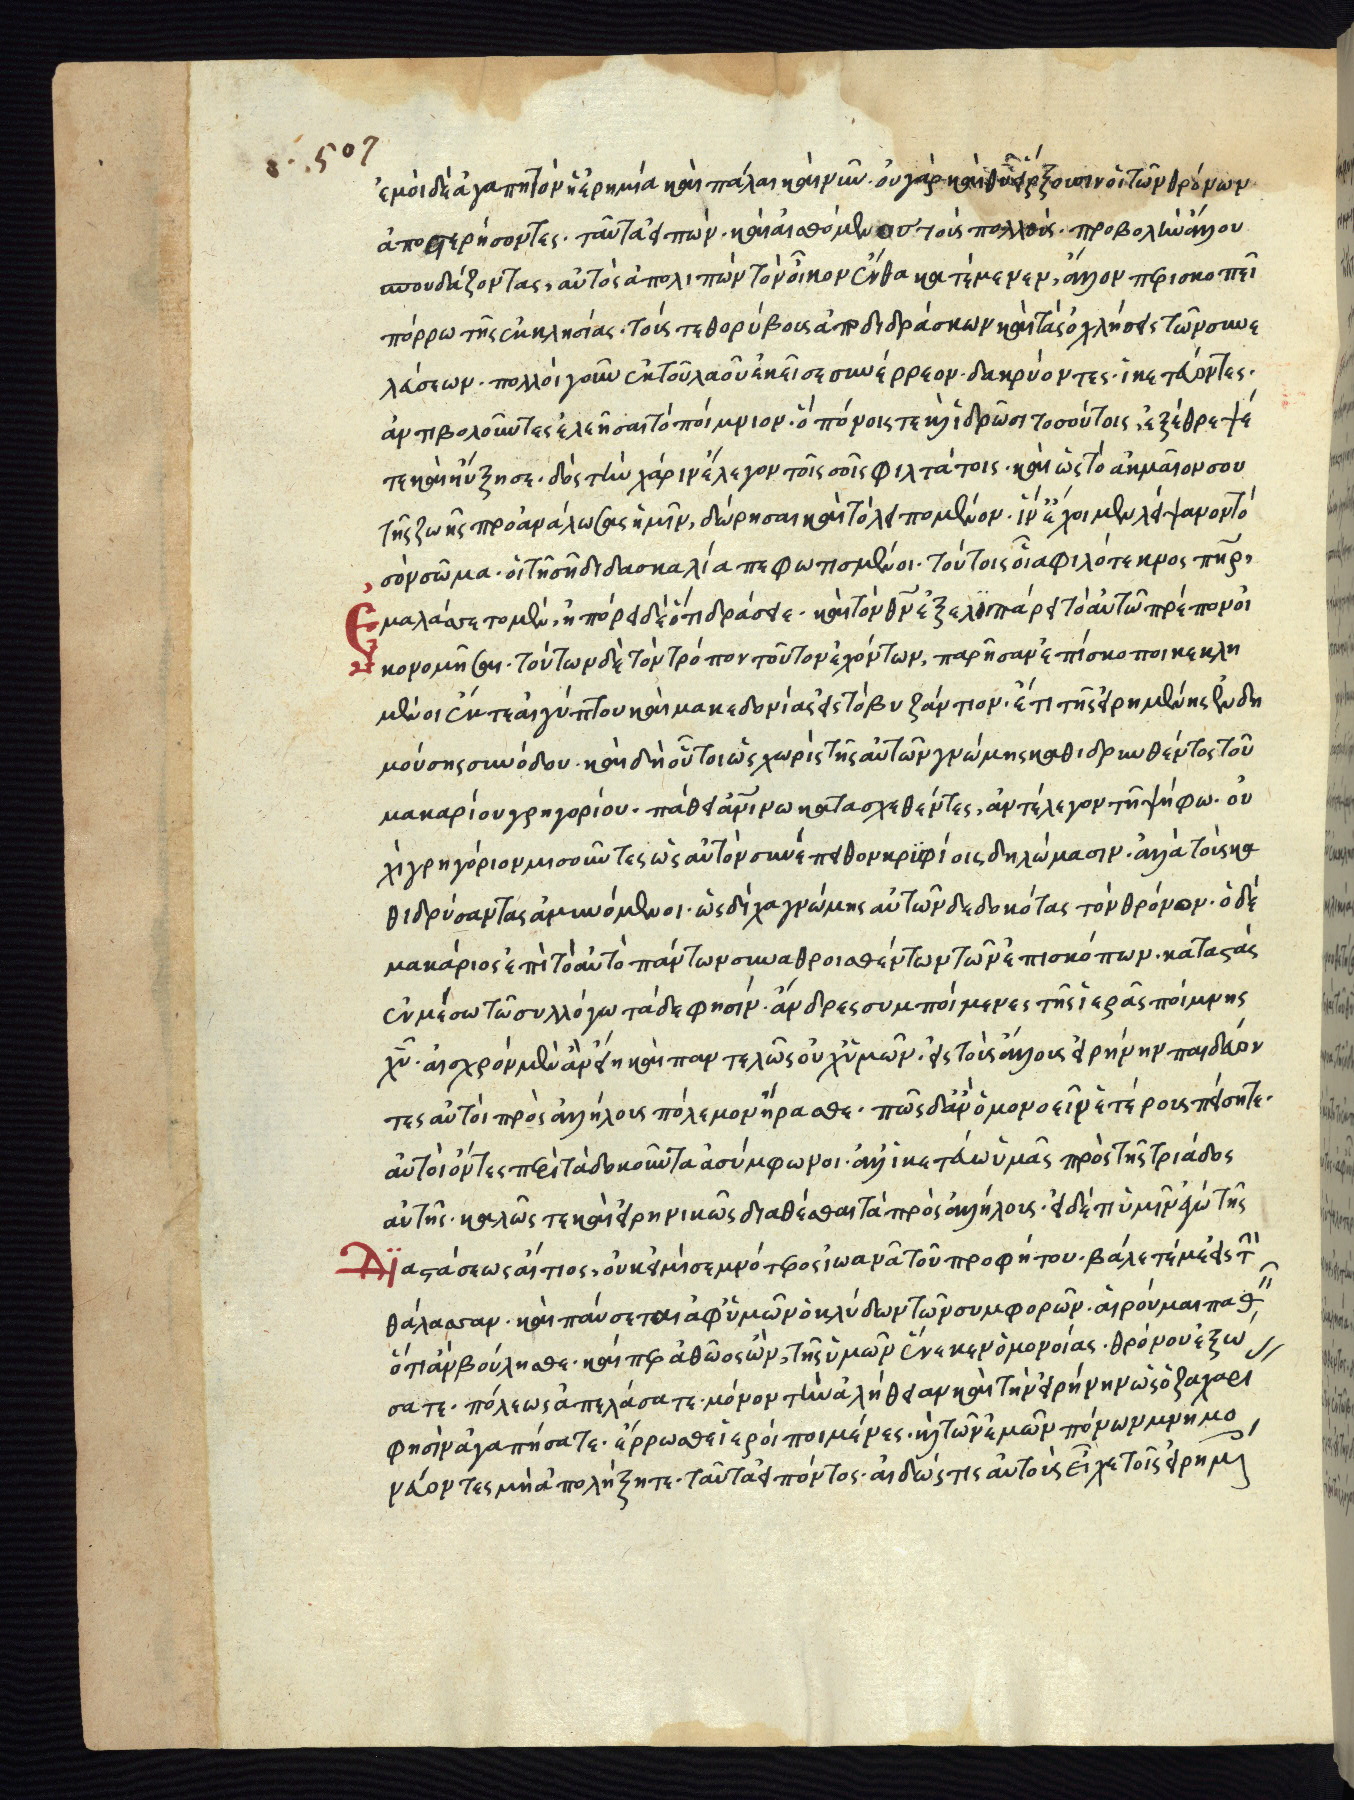 507
ἐμοὶ δὲ ἀγαπητὸν ἡ ἐρημία καὶ πάλαι καὶ νῦν· οὐ γὰρ καὶ θῦ εἴρξουσιν οἱ τῶν θρόνων
ἀποστερήσοντες· ταῦτα εἰπὼν· καὶ αἰσθόμενος τοὺς πολλοὺς· προβολὴν ἄλλου
σπουδάζοντας, αὐτὸς ἀπολιπὼν τὸν οἶκον ἔνθα κατέμενεν, ἄλλον περισκοπεῖ
πόρρω τῆς ἐκκλησίας· τούς τε θορύβους ἀποδιδράσκων καὶ τὰς ὀχλήσεις τῶν συνε
λεύσεων· πολλοὶ γοῦν ἐκ τοῦ λαοῦ ἐκεῖσε συνέρρεον· δακρύοντες· ἱκετεύοντες·
ἀντιβολοῦντες ἐλεῆσαι τὸ ποίμνιον· ὃ πόνοις τε καὶ ἱδρῶσι τοσούτοις, ἐξέθρεψέ
τε καὶ ηὔξησε· δὸς τὴν χάριν ἔλεγον τοῖς σοῖς φιλτάτοις· καὶ ὡς τὸ ἀκμαῖον σου
τῆς ζωῆς προανάλωσας ἡμῖν, δώρησαι καὶ τὸ λειπόμενον· ἵν' ἔχοιμεν λείψανον τὸ
σὸν σῶμα· οἱ τῇ σῇ διδασκαλίᾳ πεφωτισμένοι· τούτοις οἷα φιλότεκνος πηρ,
Ἐμαλάσσετο μὲν, ἠπόρει δὲ ὅτι δράσειε· καὶ τὸν θν ἐξελιπάρει τὸ αὐτῷ πρέπον οἰ
κονομῆσαι· τούτων δὲ τὸν τρόπον τοῦτον ἐχόντων, παρῆσαν ἐπίσκοποι κεκλη
μένοι ἔκ τε αἰγύπτου καὶ μακεδονίας εἰς τὸ βυζάντιον· ἔτι τῆς εἰρημένης ἐνδη
μούσης συνόδου· καὶ δὴ οὗτοι ὡς χωρὶς τῆς αὐτῶν γνώμης καθιδρυνθέντος τοῦ
μακαρίου γρηγορίου· πάθει ἀνίνω κατασχεθέντες, ἀντέλεγον τῇ ψήφῳ· οὐ
χὶ γρηγόριον μισοῦντες ὡς αὐτὸν συνέπειθον κρυφίοις δηλώμασιν· ἀλλὰ τοὺς κα
θιδρύσαντας ἀμυνόμενοι· ὡς δίχα γνώμης αὐτῶν δεδοκότας τὸν θρόνον· ὁ δὲ
μακάριος ἐπὶ τὸ αὐτὸ πάντων συναθροισθέντων τῶν ἐπισκόπων· καταστὰς
ἐν μέσω τῶ συλλόγω τάδε φησίν· ἄνδρες συμποίμενες τῆς ἱερᾶς ποίμνης
χῦ· αἰσχρὸν μὲν ἂν εἴη καὶ παντελῶς οὐχ ὑμῶν· εἰς τοὺς ἄλλους εἰρήνην παιδεύον
τες αὐτοὶ πρὸς ἀλλήλους πόλεμον ἤρασθε· πῶς δ' ἂν ὁμονοεῖν ἑτέρους πείσητε·
αὐτοὶ ὄντες περὶ τὰ δοκοῦντα ἀσύμφωνοι· ἀλλ' ἱκετεύω ὑμᾶς πρὸς τῆς τριάδος
αὐτῆς· καλῶς τε καὶ εἰρηνικῶς διαθέσθαι τὰ πρὸς ἀλλήλους· εἰ δ' ἔτι ὑμῖν ἐγὼ τῆς
Δϊαστάσεως αἴτιος, οὐκ εἰμὶ σεμνότερος ἰωανᾶ τοῦ προφήτου· βάλετέ με εἰς τὴν
θάλασσαν· καὶ παύσεται ἀφ' ὑμῶν ὁ κλύδων τῶν συμφορῶν· αἱροῦμαι παθεῖν
ὅτι ἂν βούλησθε· καίπερ ἀθῶος ὢν, τῆς ὑμῶν ἕνεκεν ὁμονοίας· θρόνου ἐξώ
σατε· πόλεως ἀπελάσατε· μόνον τὴν ἀλήθειαν καὶ τὴν εἰρήνην ὡς ὁ ζαχαρί
φησὶν ἀγαπήσατε· ἔρρωσθε ἱεροὶ ποιμένες· καὶ τῶν ἐμῶν πόνων μνημο
νεύοντες μὴ ἀπολήξητε· ταῦτα εἰπόντος· αἰδώς τις αὐτοὺς εἶχε τοῖς εἰρημ